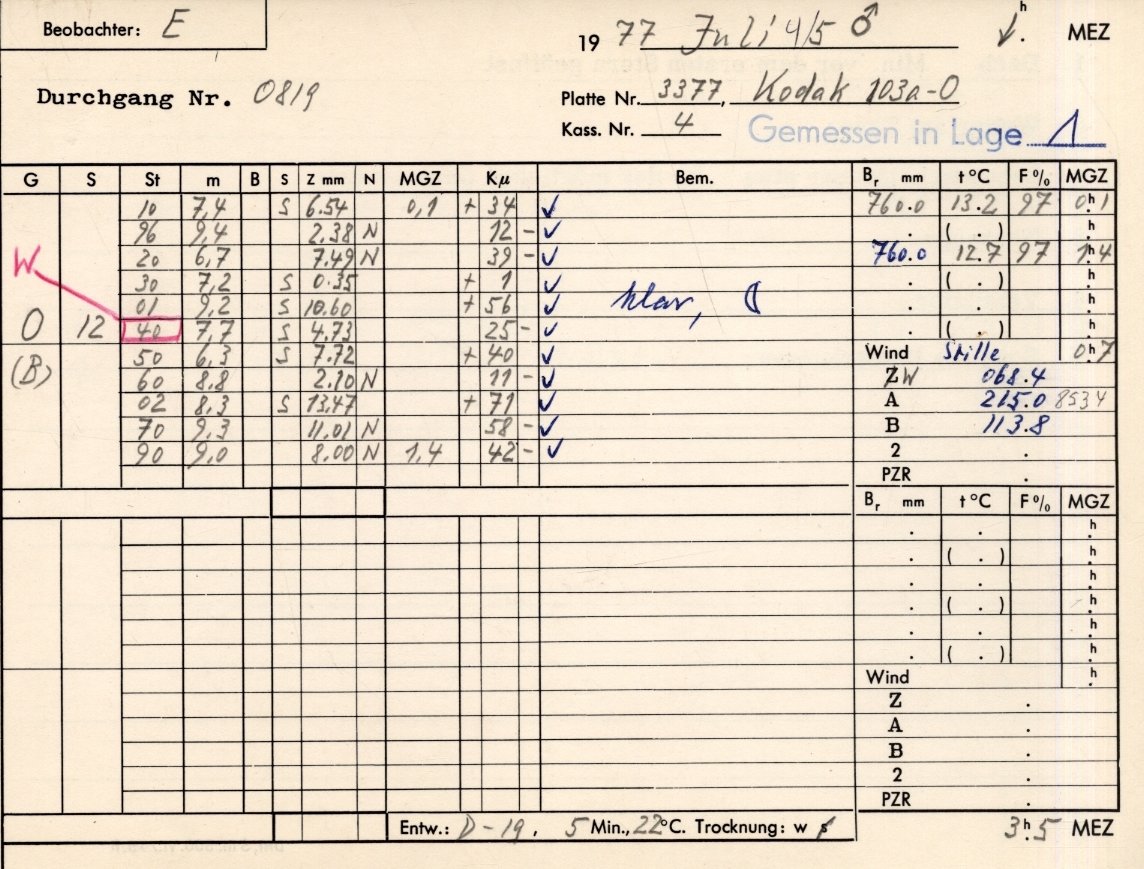 Beobachter: E
19 77 Juli 4/5 ♂ h . MEZ
Durchgang Nr. 0819
Platte Nr. 3377, Kodak 103a-O
Kass. Nr. 4 Gemessen in Lage 1
G S St m B S Z mm N MGZ Kμ Bem. Br mm t °C F % MGZ
10 7,4 S 6.54 0,1 + 34 ✓ 760.0 13.2 97 0h1
96 9,4 2.38 N 12 - ✓ . ( . ) h
20 6,7 7.49 N 39 - ✓ 760.0 12.7 97 1h4
W
30 7,2 S 0.35 + 1 ✓ . ( . ) h
01 9,2 S 10.60 + 56 ✓ klar, ☾ . . h
O 12 40 7,7 S 4.73 25 - ✓ . ( . ) h
(B) 50 6,3 S 7.72 + 40 ✓ Wind Stille 0h7
60 8.8 2.10 N 11 - ✓ Z W 068.4
02 8,3 S 13.47 + 71 ✓ A 215.0 8534
70 9,3 11.01 N 58 - ✓ B 113.8
90 9,0 8.00 N 1,4 42 - ✓ 2 .
PZR .
Br mm t °C F % MGZ
. . h
. ( . ) h
. . h
. ( . ) h
. . h
. ( . ) h
Wind h
Z .
A .
B .
2 .
PZR .
Entw.: D-19, 5 Min., 22°C. Trocknung: w f
3h5 MEZ